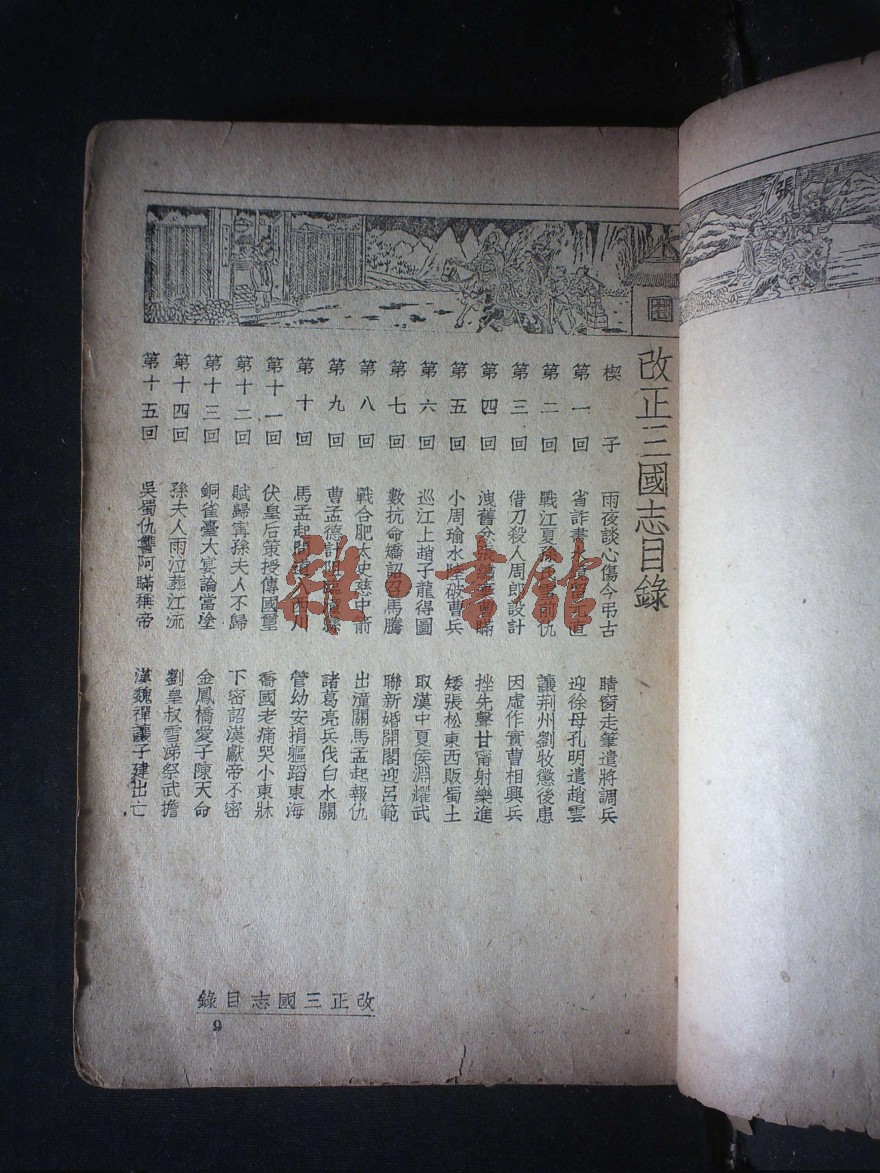 改正三國志目錄
楔子 雨夜談心傷今弔古 晴窗走筆遣將調兵
第一回 省詐書 迎徐母孔明遣趙雲
第二回 戰江夏孫 仇 讓荆州劉牧懲後患
第三回 借刀殺人周郎設計 因虛作實曹相興兵
第四回 洩舊忿張 曹瞞 挫先聲甘甯射樂進
第五回 小周瑜水陸破曹兵 矮張松東西販蜀土
第六回 巡江上趙子龍得圖 取漢中夏侯淵耀武
第七回 數抗命矯詔召馬騰 聯新婚開閣迎呂範
第八回 戰合肥太史慈中箭 出潼關馬孟起報仇
第九回 曹孟德計 諸葛亮兵伐白水關
第十回 馬孟起間道入西川 管幼安捐軀蹈東海
第十一回 伏皇后策授傳國璽 喬國老痛哭小東牀
第十二回 賦歸甯孫夫人不歸 下密詔漢獻帝不密
第十三回 銅雀臺大宴論當塗 金鳳橋愛子陳天命
第十四回 孫夫人雨泣葬江流 劉皇叔雪涕祭武擔
第十五回 吳蜀仇讐阿瞞稱帝 漢魏禪讓子建出亡
改正三國志目錄
9
張
雜·書館